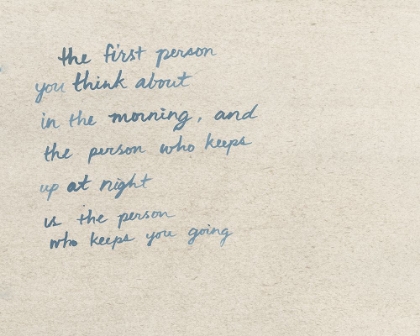 the first person
you think about
in the morning, and
the person who keeps
up at night
is the person
who keeps you going